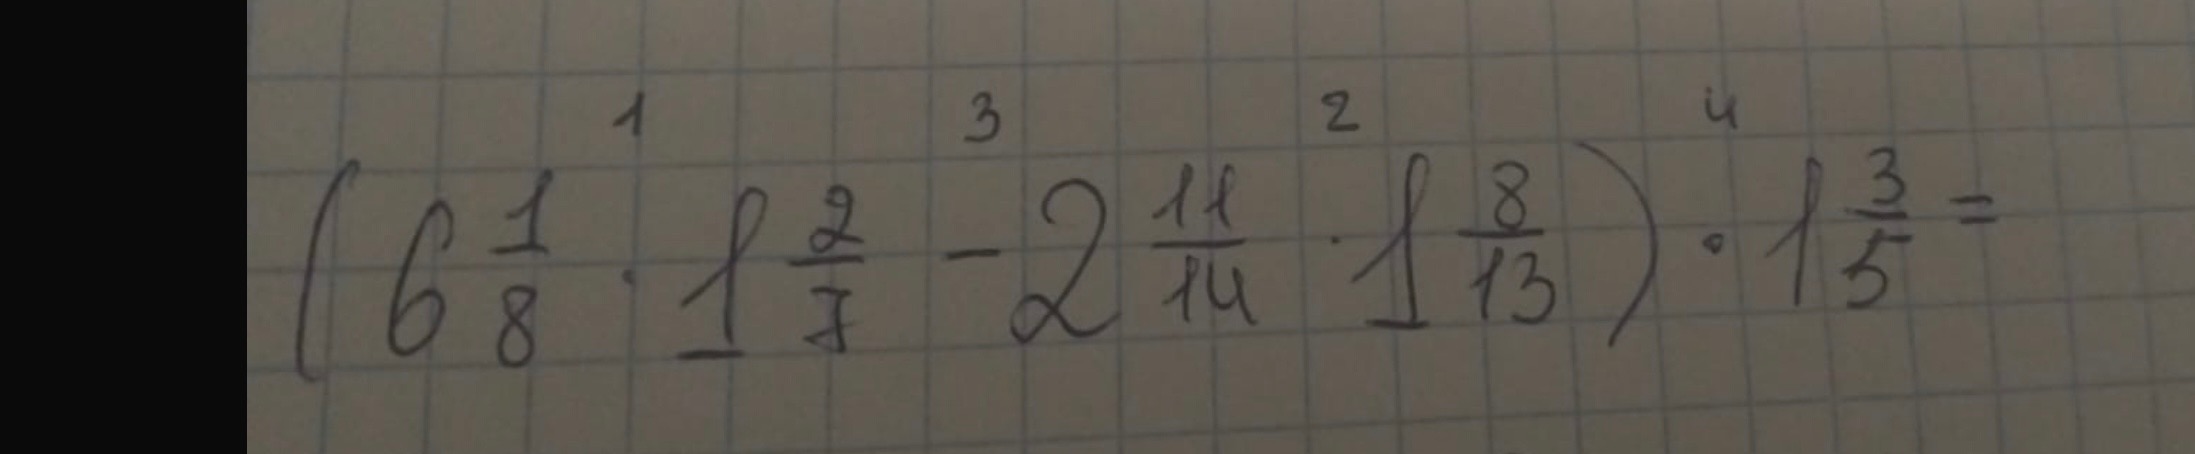 1 3 2 4
(6 1/8 · 1 2/7 - 2 11/14 · 1 8/13) · 1 3/5 =